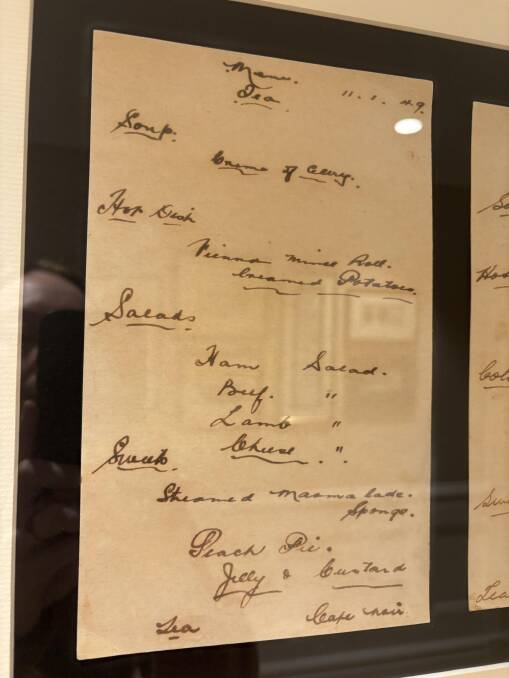 Menu.
Tea 11.1.49.
Soup.
Creme of Celery.
Hot Dish
Vienna Mince Roll.
Creamed Potatoes.
Salads
Ham Salad.
Beef. "
Lamb "
Cheese . ".
Sweets.
Steamed Marmalade.
Sponge.
Peach Pie.
Jelly & Custard
Tea Cafe noir.
So
Ho
Col
Sw
Tea